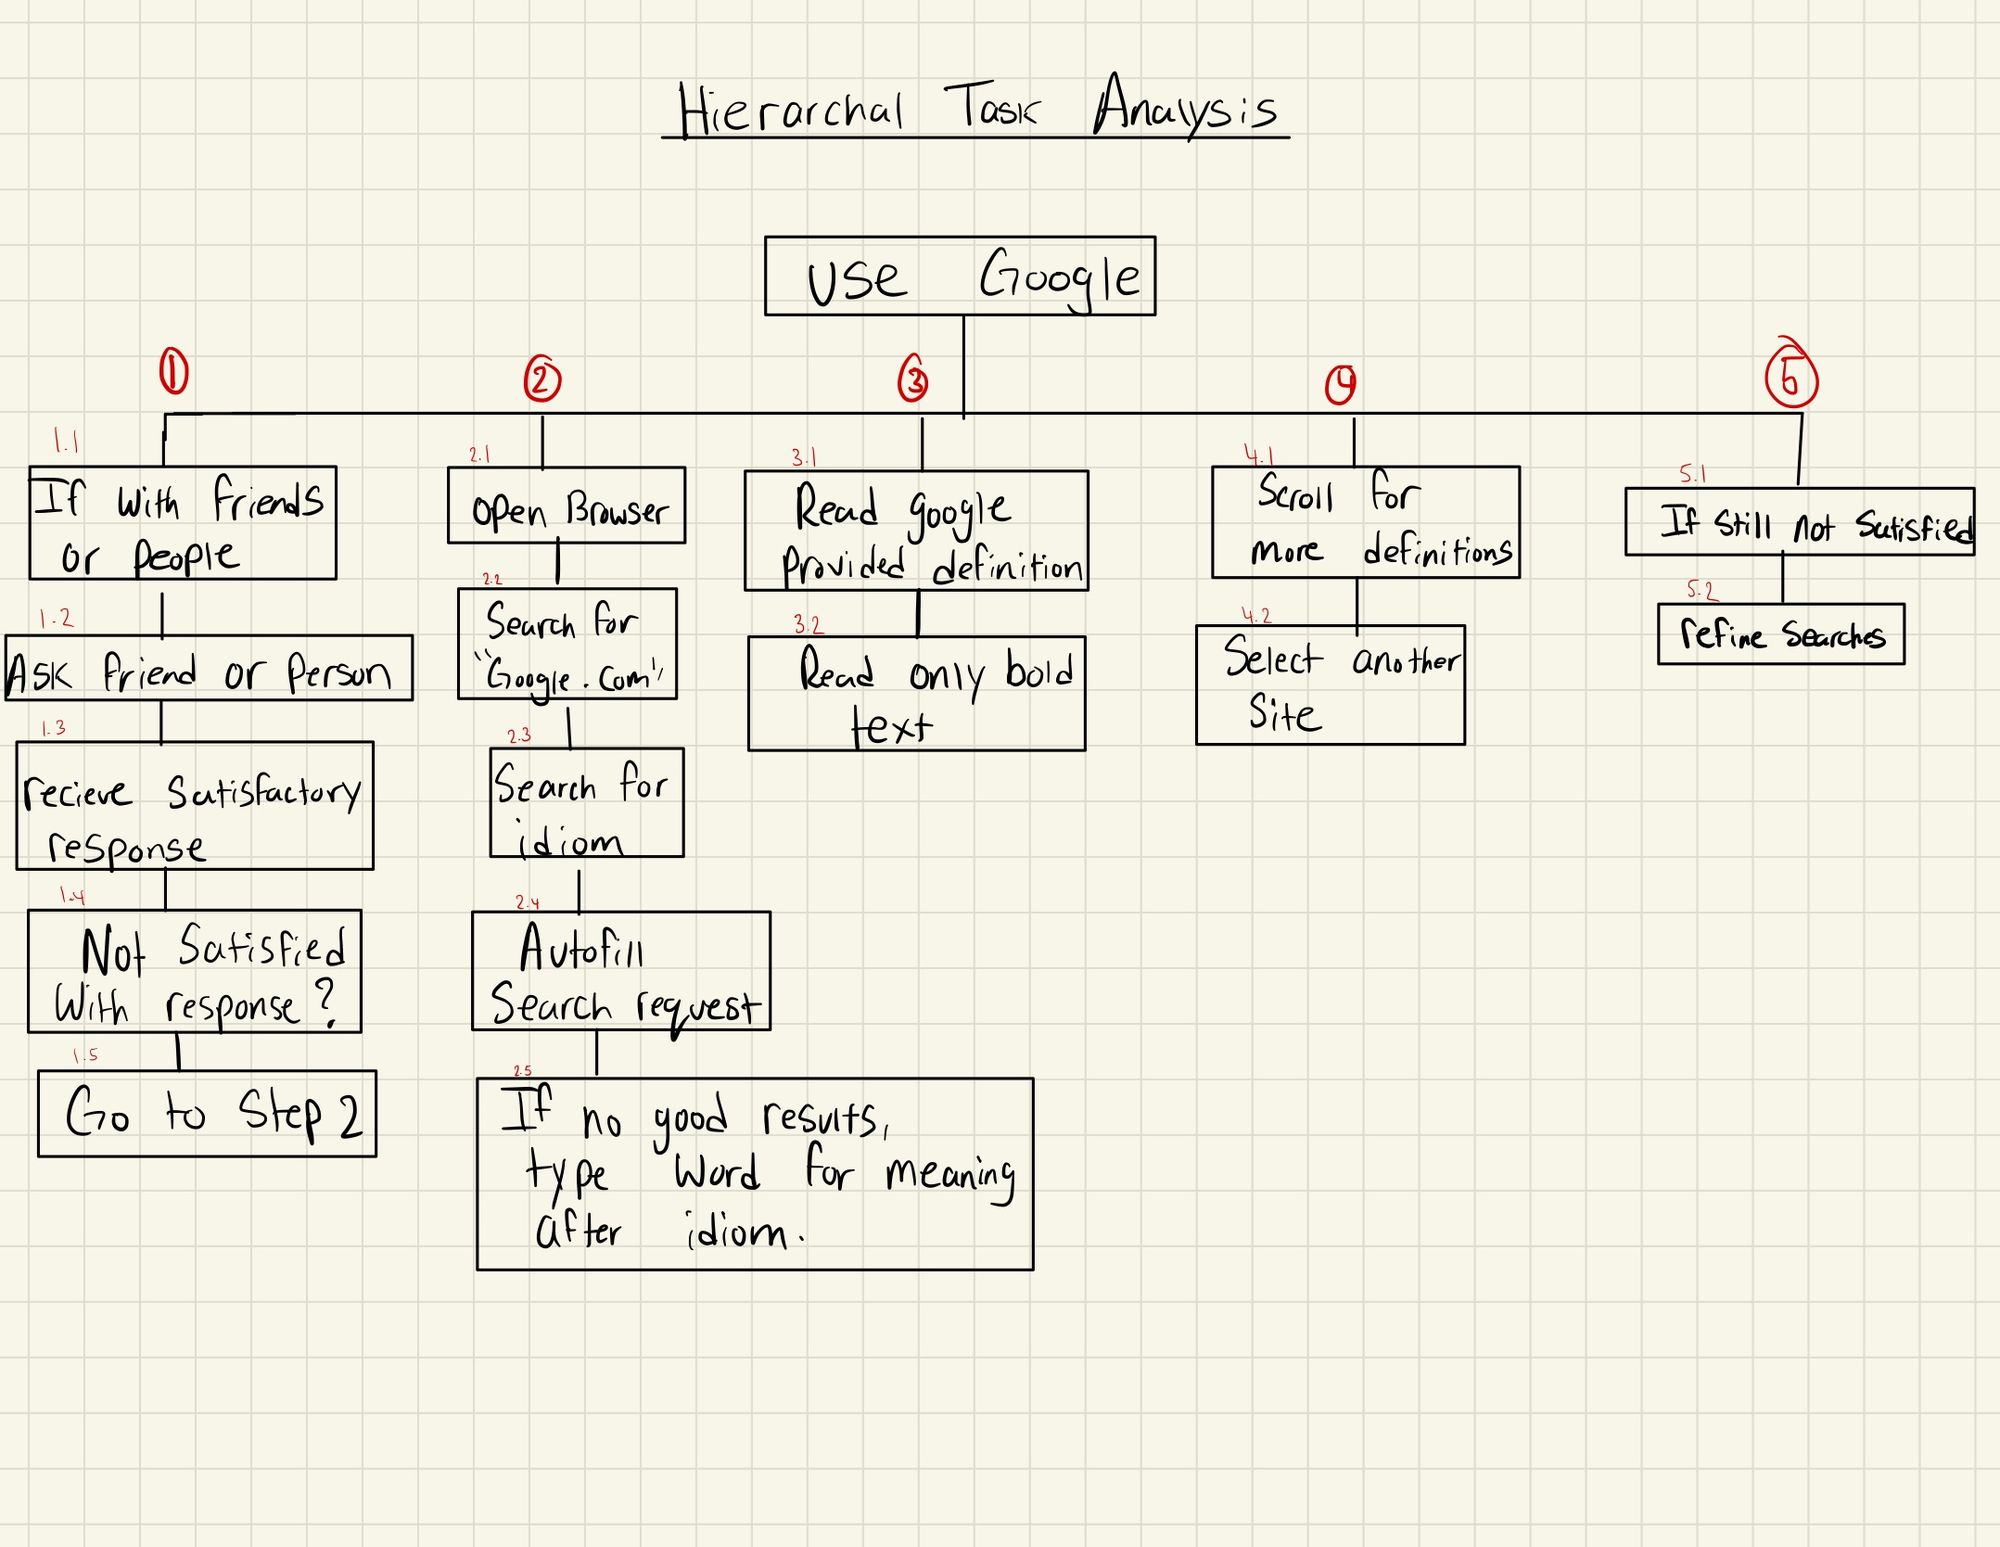 Hierarchal Task Analysis
use Google
1
2
3
4
5
1.1
If with friends
or people
1.2
Ask friend or person
1.3
recieve satisfactory
response
1.4
Not satisfied
with response?
1.5
Go to step 2
2.1
open Browser
2.2
Search for
"Google.com"
2.3
Search for
idiom
2.4
Autofill
Search request
2.5
If no good results,
type word for meaning
after idiom.
3.1
Read google
provided definition
3.2
Read only bold
text
4.1
Scroll for
more definitions
4.2
Select another
site
5.1
If still not satisfied
5.2
refine searches